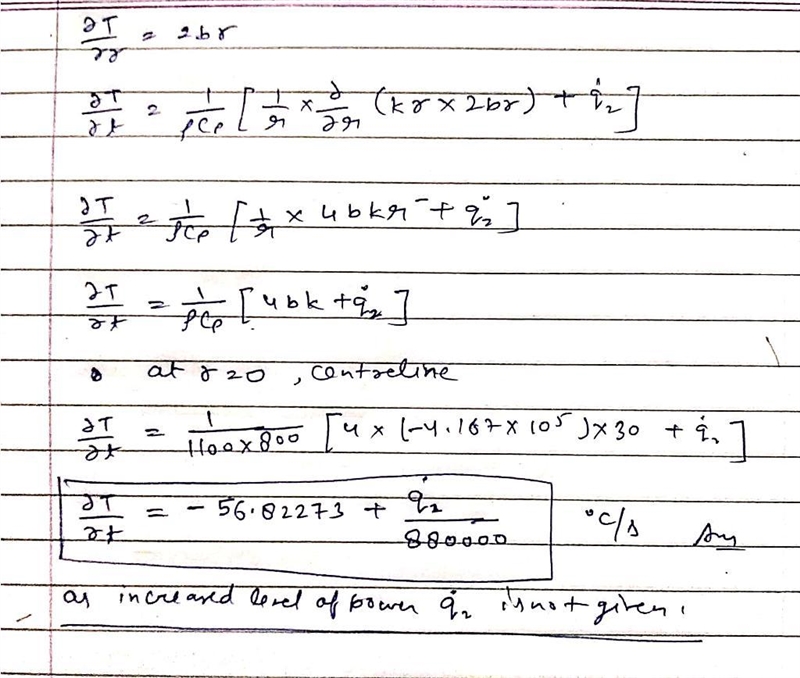 ∂T/∂r = 2br
∂T/∂t = 1/ρCp [ 1/r × ∂/∂r (kr × 2br) + q̇₂ ]
∂T/∂t = 1/ρCp [ 1/r × 4bkr + q̇₂ ]
∂T/∂t = 1/ρCp [ 4bk + q̇₂ ]
• at r=0, centreline
∂T/∂t = 1/1100×800 [ 4 × (-4.167×10⁵)×30 + q̇₂ ]
∂T/∂t = - 56.82273 + q̇₂/880000 °C/s Ans
as increased level of power q̇₂ is not given.